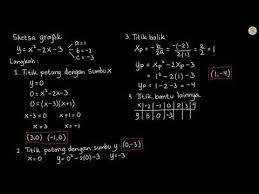 Sketsa grafik
y = x² - 2x - 3
a = 1
b = -2
c = -3
Langkah :
1. Titik potong dengan sumbu x
y = 0
0 = x² - 2x - 3
0 = (x-3)(x+1)
x-3 = 0 x+1 = 0
x = 3 x = -1
(3,0) (-1,0)
2. Titik potong dengan sumbu y (0,-3)
x = 0 y = 0² - 2(0) - 3 y = -3
3. Titik balik
xp = -b/2a = -(-2)/2(1) = 2/2 = 1
yp = xp² - 2xp - 3
= 1² - 2(1) - 3
= 1 - 2 - 3 (1,-4)
4. Titik bantu lainnya
x -2 -1 0 2 3 4
y 5 0 -3